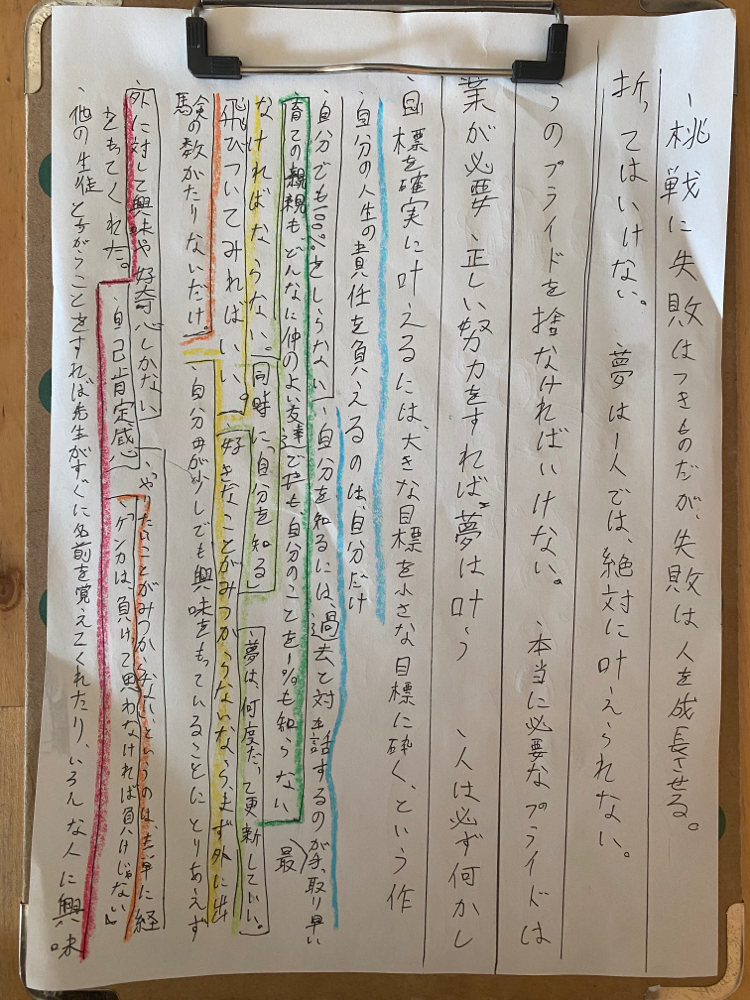 ・挑戦に失敗はつきものだが、失敗は人を成長させる。
折ってはいけない。 夢は1人では、絶対に叶えられない。
うのプライドを捨なければいけない。 本当に必要なプライドは
業が必要 、正しい努力をすれば夢は叶う 、人は必ず何かし
・目標を確実に叶えるには、大きな目標を小さな目標に砕く、という作
・自分の人生の責任を負えるのは、自分だけ
・自分でも100%をしらない 、自分を知るには、過去と対話するのが手取り早い
最
・育ての親もどんなに仲のよい友達でも、自分のことを1%も知らない
なければならない。 同時に「自分を知る」 ・夢は、何度だって更新していい。
飛びついてみればいい。 ・好きなことがみつからないならまず外に出
験の数がたりないだけ。 ・自分が少しでも興味をもっていることにとりあえず
・外に対して興味や好奇心しかない 、やりたいことがみつからない、というのは、単に経
をもってくれた。 ・自己肯定感 「ケンカは、負けって思わなければ負けじゃない」
・他の生徒とちがうことをすれば先生がすぐに名前を覚えてくれたり、いろんな人に興味